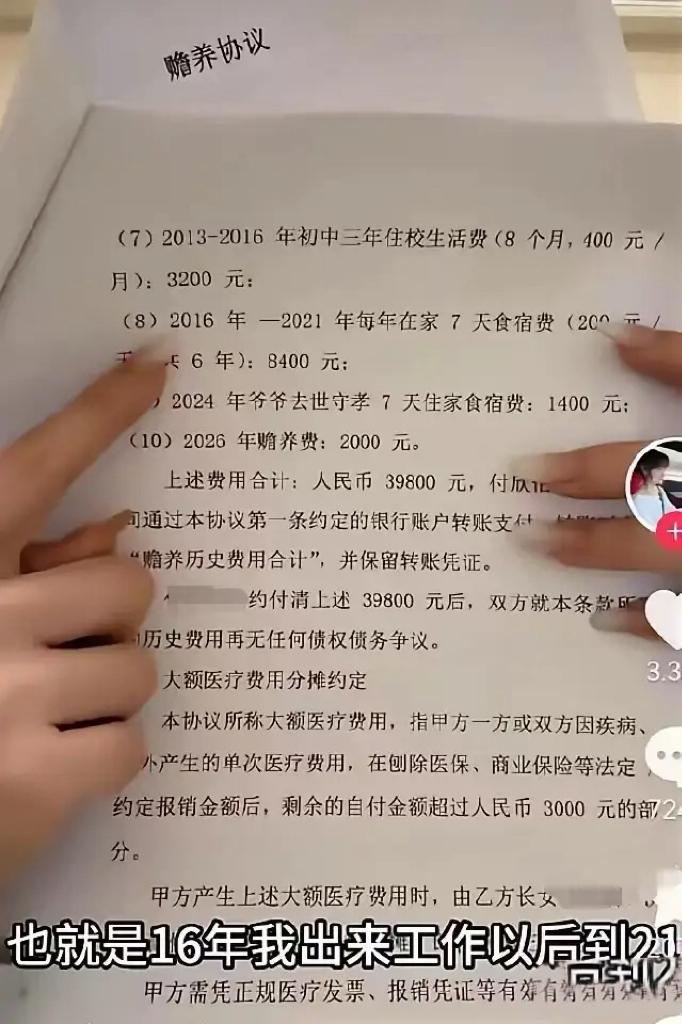 赡养协议
(7) 2013-2016 年初中三年住校生活费(8 个月,400 元 /
月): 3200 元;
(8) 2016 年 —2021 年每年在家 7 天食宿费(200 元 /
共 6 年): 8400 元;
2024 年爷爷去世守孝 7 天住家食宿费: 1400 元;
(10) 2026 年赡养费: 2000 元。
上述费用合计: 人民币 39800 元, 付款
间通过本协议第一条约定的银行账户转账支付
“赡养历史费用合计”, 并保留转账凭证。
约付清上述 39800 元后, 双方就本条款所
历史费用再无任何债权债务争议。
大额医疗费用分摊约定
本协议所称大额医疗费用, 指甲方一方或双方因疾病、
外产生的单次医疗费用, 在刨除医保、商业保险等法定
约定报销金额后, 剩余的自付金额超过人民币 3000 元的部
分。
甲方产生上述大额医疗费用时, 由乙方长女
甲方需凭正规医疗发票、报销凭证等有效
也就是16年我出来工作以后到21
3.3
724